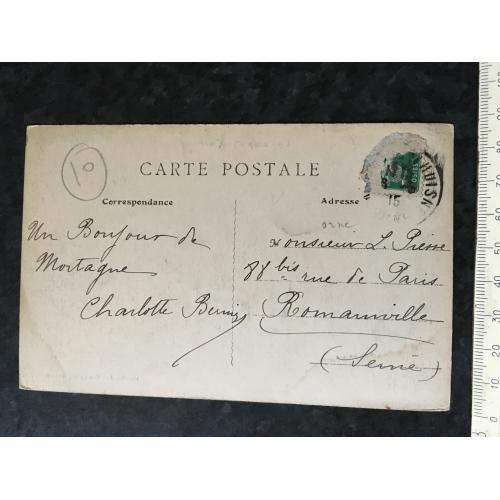 10
CARTE POSTALE
Correspondance
Adresse
POSTES
15
orne
Un Bonjour de
Mortagne
Charlotte
Monsieur L. Pierre
88 bis rue de Paris
Romainville
(Seine)